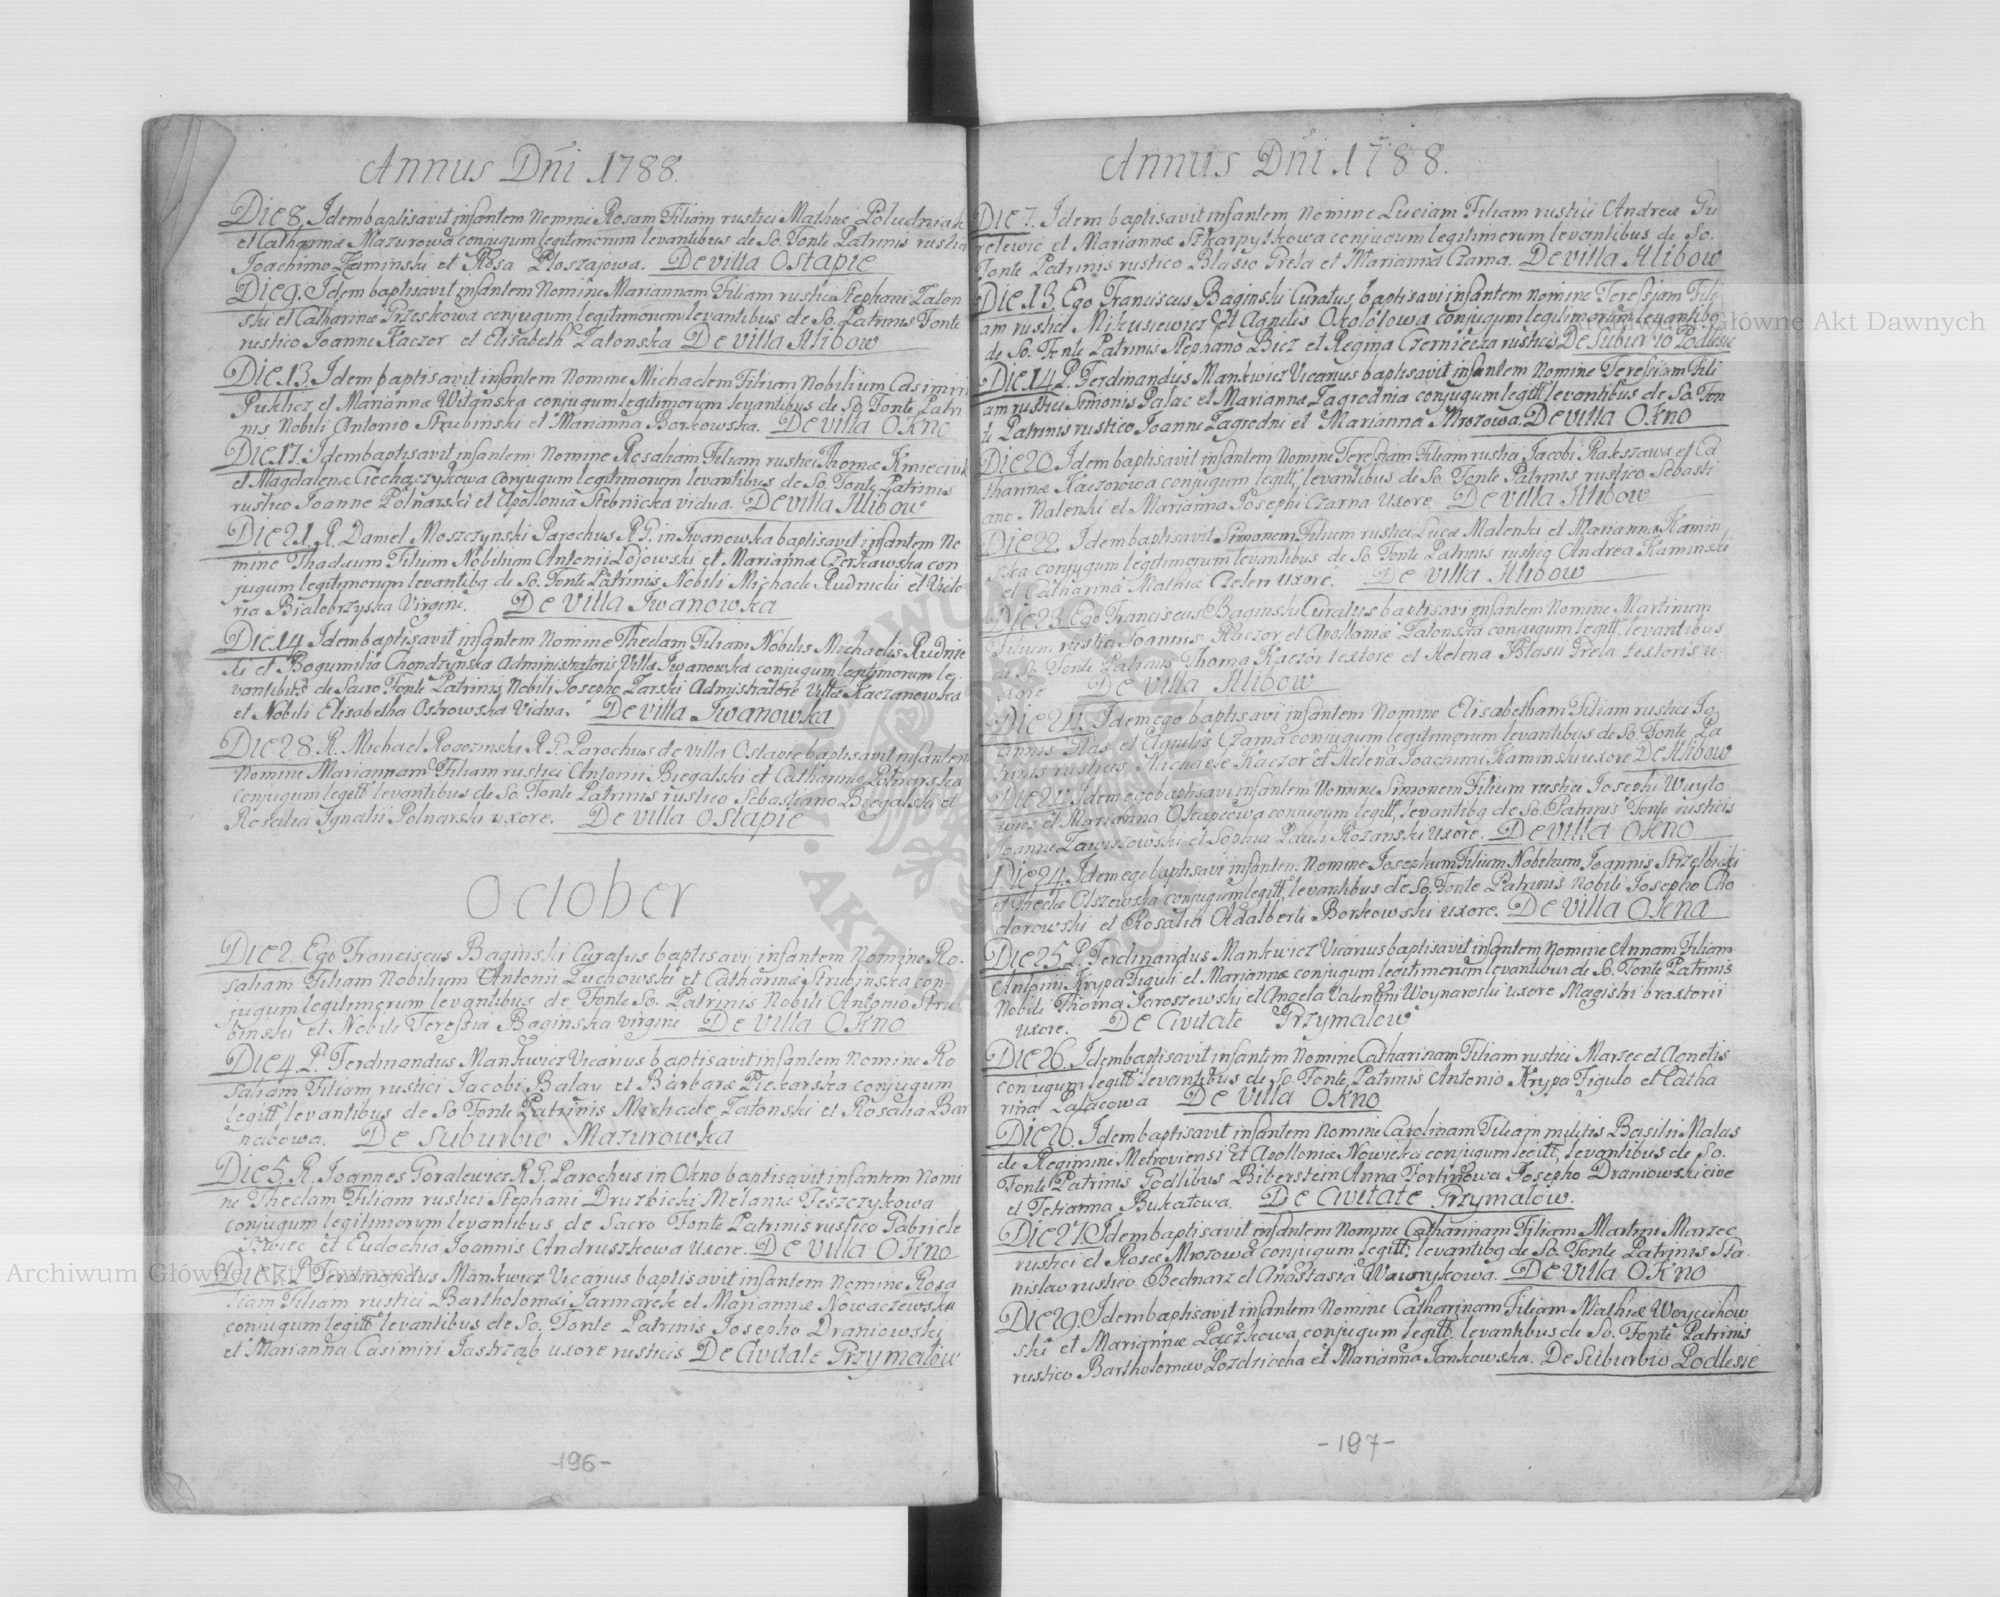 Annus Dni 1788.
Die 8. Idem baptisavit infantem Nomine Rosam Filiam rustici Mathiæ Poludniak
et Catharinæ Mazurowa conjugum legitimorum levantibus de So. Fonte Patrinis rustico
Joachimo Kaminski et Rosa Ploszajowa. De villa Ostapie
Die 9. Idem baptisavit infantem Nomine Mariannam Filiam rustici Stephani Zaton
ski et Catharinæ Przeskowa conjugum legitimorum levantibus de So. Patrinis Fonte
rustico Joanne Kaczor et Elisabeth Zatonska De villa Hlibow
Die 13. Idem baptisavit infantem Nomine Michaelem Filium Nobilium Casimiri
Puklicz et Mariannæ Witanska conjugum legitimorum levantibus de So. Fonte Patri
nis Nobili Antonio Strubinski et Marianna Borkowska. De villa Okno
Die 17. Idem baptisavit infantem Nomine Rosaliam Filiam rustici Thomæ Kmieciuk
et Magdalenæ Ciechaczykowa conjugum legitimorum levantibus de So. Fonte Patrinis
rustico Joanne Polnarski et Apollonia Stebnicka vidua. De villa Hlibow
Die 21. R. Daniel Moszczynski Parochus R.G. in Iwanowka baptisavit infantem No
mine Thadæum Filium Nobilium Antonii Lojowski et Marianna Czerkawska con
jugum legitimorum levantibq de So. Fonte Patrinis Nobili Michaele Rudnicki et Victo
ria Bialobrzyska Virgine. De villa Iwanowka
Die 14. Idem baptisavit infantem Nomine Theclam Filiam Nobilis Michaelis Rudnic
ki et Bogumilia Chondzynska Administratoris Villa Iwanowka conjugum legitimorum le
vantibus de Sacro Fonte Patrinis Nobili Josepho Zarski Admistratore Villa Kaczanowka
et Nobili Elisabetha Ostrowska Vidua. De villa Iwanowka
Die 28. R. Michael Rogozinski R.G. Parochus de villa Ostapie baptisavit infantem
Nomine Mariannam Filiam rustici Antonii Biegalski et Catharinæ Polnarska
conjugum legitt levantibus de So. Fonte Patrinis rustico Sebastiano Biegalski et
Rosalia Ignatii Polnarski uxore. De villa Ostapie
October
Die 2. Ego Franciscus Baginski Curatus baptisavi infantem Nomine Ro-
saliam Filiam Nobilium Antonii Zuchowski et Catharinæ Strubinska con-
jugum legitimorum levantibus de Fonte So. Patrinis Nobili Antonio Stru
binski et Nobili Teressia Baginska virgine De villa Okno
Die 4. P. Ferdinandus Mankwicz Vicarius baptisavit infantem Nomine Ro
saliam Filiam rustici Jacobi Balay et Barbaræ Piekarska conjugum
legitt levantibus de So Fonte Patrinis Michaele Zatonski et Rosalia Bar
nabowa. De Suburbio Mazurowka
Die 5. R. Joannes Goralewicz R.G. Parochus in Okno baptisavit infantem Nomi
ne Theclam Filiam rustici Stephani Druzbicki Melaniæ Teszczykowa
conjugum legitimorum levantibus de Sacro Fonte Patrinis rustico Gabriele
Szwiec et Eudochia Joannis Andruszkowa Uxore. De villa Okno
Die 7. P. Ferdinandus Mankwicz Vicarius baptisavit infantem Nomine Rosa
liam Filiam rustici Bartholomæi Jarmarek et Mariannæ Nowaczewska
conjugum legitt levantibus de So. Fonte Patrinis Josepho Draniowski
et Marianna Casimiri Jastrząb uxore rusticis De Civitate Grzymalow
-196-
Annus Dni 1788.
Die 7. Idem baptisavit infantem Nomine Luciam Filiam rustici Andreæ Gu
relewic et Mariannæ Szkarpytkowa conjugum legitimorum levantibus de So.
Fonte Patrinis rustico Blasio Grela et Marianna Czarna. De villa Hlibow
Die 13. Ego Franciscus Baginski Curatus baptisavi infantem nomine Teressiam Fili
am rustici Mikusiewicz et Agnetis Okololowa conjugum legitimorum levantibq
de So. Fonte Patrinis Stephano Bicz et Regina Czerniecka rusticis De Suburbio Podlesie
Die 14. P. Ferdinandus Mankwicz Vicarius baptisavit infantem Nomine Teressiam Fili
am rustici Simonis Palac et Mariannæ Zagrodnia conjugum legitt levantibus de So. Fon
te Patrinis rustico Joanne Zagrodni et Marianna Mrozowa. De villa Okno
Die 20. Idem baptisavit infantem Nomine Teressiam Filiam rustici Jacobi Rakszawa et Ca
tharinæ Kaczorowa conjugum legitt levantibus de So. Fonte Patrinis rustico Sebasti
ano Malenki et Marianna Josephi Czarna Uxore. De villa Hlibow
Die 22. Idem baptisavit Simonem Filium rustici Lucæ Malenki et Marianna Kamin
ska conjugum legitimorum levantibus de So. Fonte Patrinis rustico Andrea Kaminski
et Catharina Mathiæ Czelen uxore. De villa Hlibow
Die 23. Ego Franciscus Baginski Curatus baptisavi infantem Nomine Martinum
Filium rustici Joannis Kaczor et Apollaniæ Zatonska conjugum legitt levantibus
de So Fonte Patrinis Thoma Kaczor textore et Helena Blasii Grela textoris u-
xore De villa Hlibow
Die 24. Idem ego baptisavi infantem Nomine Elisabetham Filiam rustici Jo
annis Has et Agnetis Czarna conjugum legitimorum levantibus de So Fonte Pa
trinis rusticis Michaele Kaczor et Helena Joachimi Kaminski uxore De Hlibow
Die 24. Idem ego baptisavi infantem Nomine Simonem Filium rustici Josephi Wayto
wicz et Marianna Ostapcowa conjugum legitt levantibq de So. Patrinis Fonte rusticis
Joanne Zawislowski et Sophia Pauli Rozanski Uxore. De villa Okno
Die 24. Idem ego baptisavi infantem Nomine Josephum Filium Nobilium Joannis Strzelbicki
et Theclæ Olszewska conjugum legitt levantibus de So. Fonte Patrinis Nobili Josepho Cho
dorowski et Rosalia Adalberti Borkowski uxore. De villa Okna
Die 25. P. Ferdinandus Mankwicz Vicarius baptisavit infantem Nomine Annam Filiam
Antonii Krypa Figuli et Mariannæ conjugum legitimorum levantibus de So. Fonte Patrinis
Nobili Thoma Jaroszewski et Angela Valentini Woynaroski uxore Magistri braxatorii
uxore. De Civitate Grzymalow
Die 26. Idem baptisavit infantem Nomine Catharinam Filiam rustici Marzec et Agnetis
conjugum legitt levantibus de So. Fonte Patrinis Antonio Krypa Figulo et Catha
rina Palacowa De villa Okno
Die 26. Idem baptisavit infantem Nomine Carolinam Filiam militis Basilii Malas
de Regimine Metroviensi et Apolloniæ Nowicka conjugum legitt levantibus de So.
Fonte Patrinis Godlibus Biberstein Anna Fortinowa Josepho Draniowski cive
et Tetianna Bukatowa. De Civitate Grzymalow.
Die 27. Idem baptisavit infantem Nomine Catharinam Filiam Martini Marzec
rustici et Rosæ Mrozowa conjugum legitt levantibq de So. Fonte Patrinis Sta-
nislao rustico Bednarz et Anastasia Wawrykowa. De villa Okno
Die 29. Idem baptisavit infantem Nomine Catharinam Filiam Mathiæ Woyciehow
ski et Mariannæ Pączkowa conjugum legitt levantibus de So. Fonte Patrinis
rustico Bartholomæo Pozdziocha et Marianna Jankowska. De Suburbio Podlesie
-197-
Archiwum Główne Akt Dawnych
Archiwum Główne Akt Dawnych